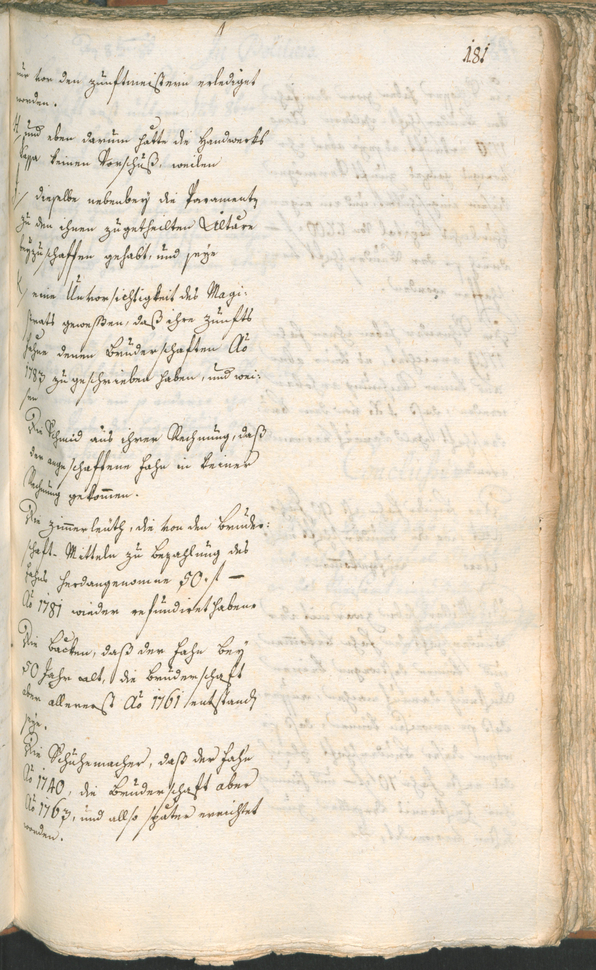 181
nur vor den zunftmeistern erlediget
worden.
und eben darum hatte die Handwerks
Cassa keinen Vorschuß, weilen
dieselbe nebenbey die Paramenta
zu den ihnen zugetheilten Altäre
beyzuschaffen gehabt, und seye
eine Unvorsichtigkeit des Magi¬
strats gewesßen, daß ihre zunfts
Fahne denen Bruderschaften Ao
1783 zugeschrieben haben, und wei¬
sen
Die Schmid aus ihrer Rechnung, daß
der angeschaffene Fahn in keiner
Rechnung gekommen.
Die zimerleuth, die von den Bruder¬
schaft Mitteln zu Bezahlung des
Fahns herdangenomene 50 f —
Ao 1781 wieder refundiret haben
Die Backen, daß der Fahn bey
50 Jahr alt, die Bruderschaft
aber allererst Ao 1761 entstanden
seye.
Die Schuhemacher, daß der Fahn
Ao 1740, die Bruderschaft aber
Ao 1763, und allso später errichtet
worden.